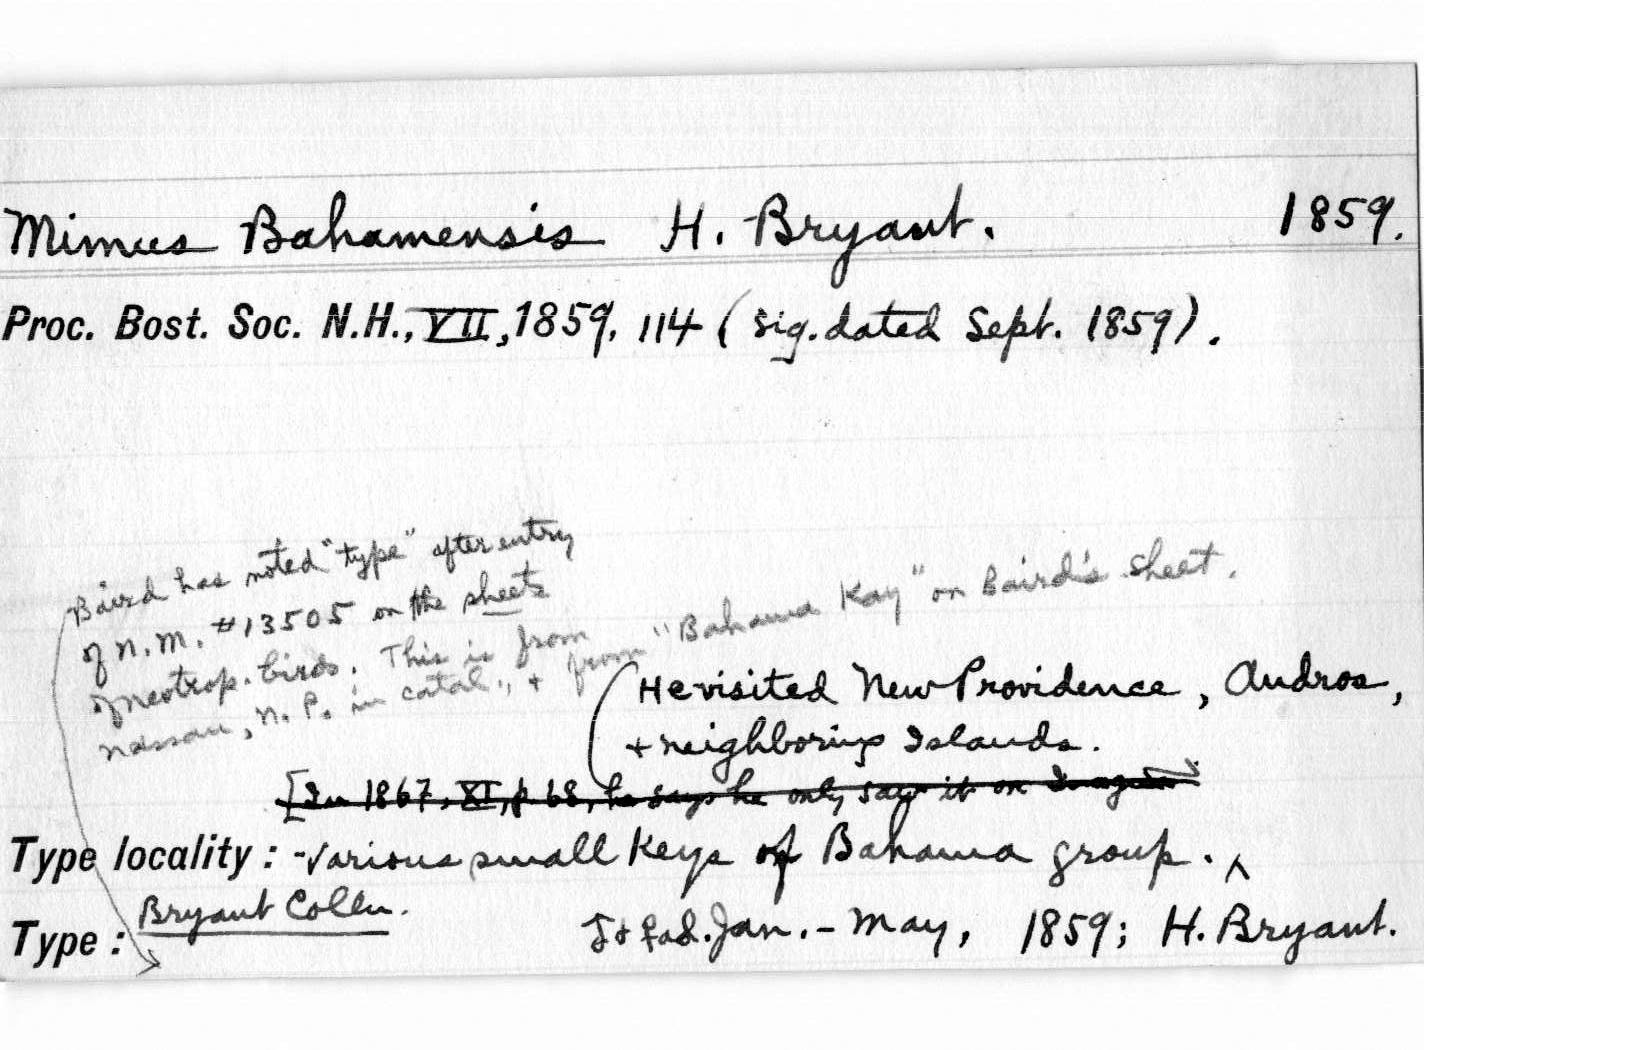 Mimus Bahamensis H. Bryant. 1859.
Proc. Bost. Soc. N.H., VII, 1859, 114 (sig. dated Sept. 1859).
Baird has noted "type" after entry
of N.M. #13505 on the sheets
of neotrop. birds. This is from
Nassau, N.P. in catal., + from "Bahama Kay" on Baird's sheet.
(He visited New Providence, Andros,
+ neighboring Islands.
[In 1867, XI, p 68, he says he only saw it on Inagua]
Type locality: - various small Keys of Bahama group. ^
Bryant Colln.
Type: Jan. - May, 1859; H. Bryant.